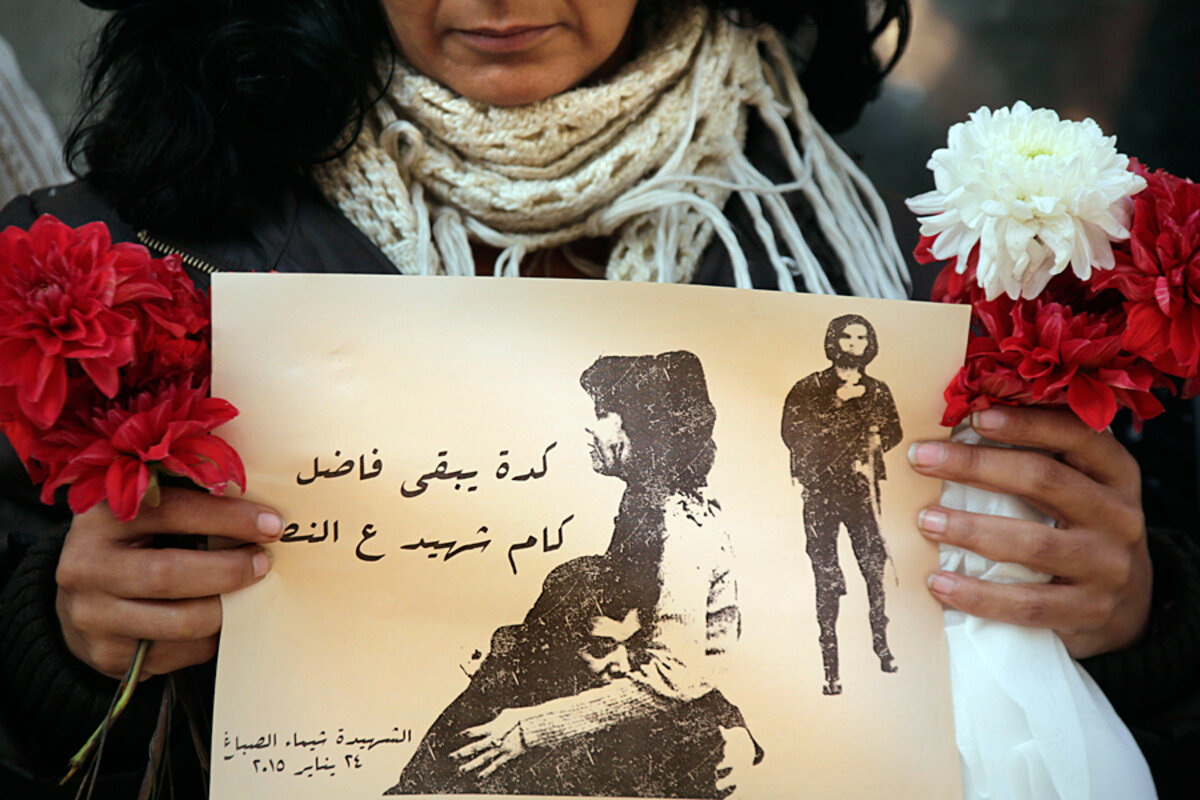 كدة يبقى فاضل
كام شهيد ع
الشهيدة شيماء الصباغ
٢٤ يناير ٢٠١٥